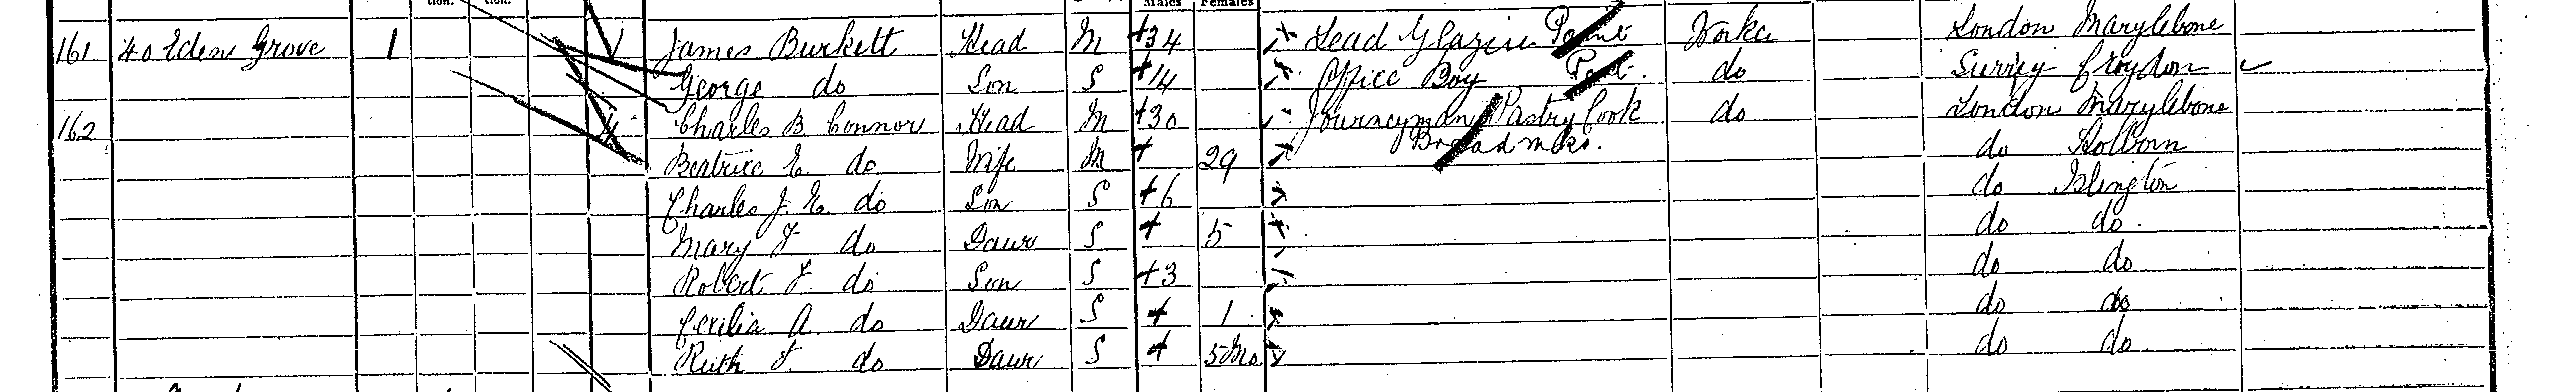 tion. tion. Males Females
161 40 Eden Grove 1 1 James Burkett Head M 34 Lead Glazier Worker London Marylebone
George do Son S 14 Office Boy do Surrey Croydon
162 4 Charles B. Connor Head M 30 Journeyman Pastry Cook do London Marylebone
Beatrice E. do Wife M 29 Bread mkr. do Holborn
Charles J. E. do Son S 6 do Islington
Mary F do Daur S 5 do do
Robert F. do Son S 3 do do
Cecilia A. do Daur S 1 do do
Ruth F. do Daur S 5 Mo. do do